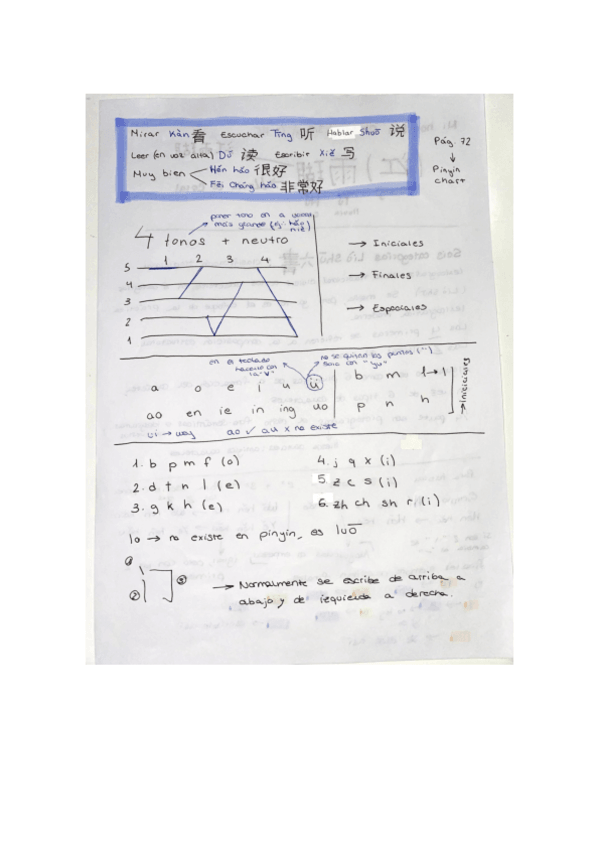 Mirar Kàn 看 Escuchar Tīng 听 Hablar Shuō 说
Leer (en voz alta) Dú 读 Escribir Xiě 写
Muy bien Hěn hǎo 很好
Fēi cháng hǎo 非常好
Pág. 72
↓
Pinyin chart
poner tono en a vocal
más grande (ej: hǎo
4 tonos + neutro
1 2 3 4
5
4
3
2
1
→ Iniciales
→ Finales
→ Especiales
en el teclado
no se quitan los puntos (¨)
a o e i u ü
ao en ie in ing uo
ui → uei ao ✓ au x no existe
b m l → l
p n h
→ Iniciales
1. b p m f (o)
2. d t n l (e)
3. g k h (e)
4. j q x (i)
5 z c s (i)
6. zh ch sh r (i)
lo → no existe en pinyin, es luō
① ② ③
→ Normalmente se escribe de arriba a
abajo y de izquierda a derecha.